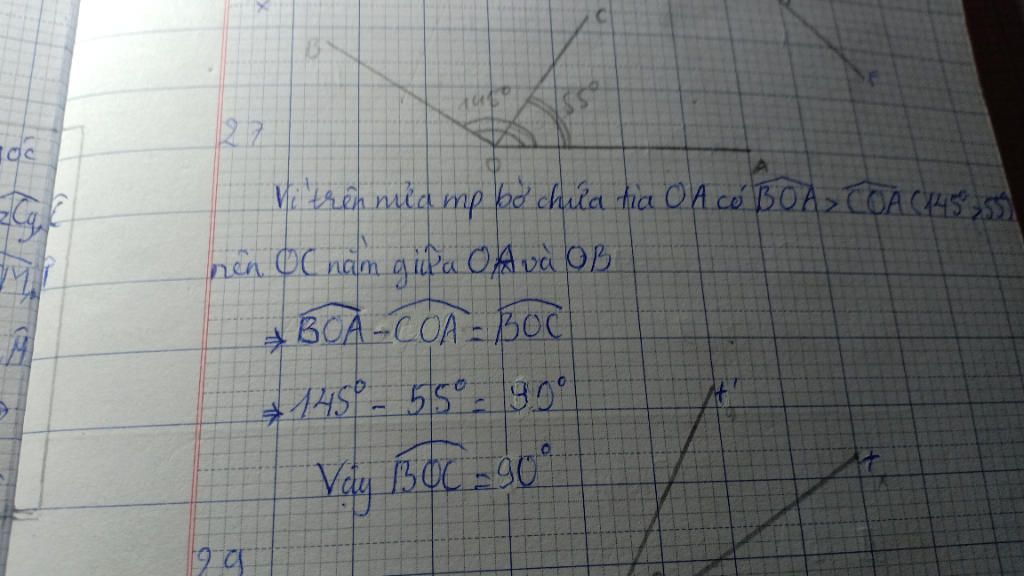 B
C
145°
55°
27
O
A
Vì trên nửa mp bờ chứa tia OA có BOA > COA (145° > 55°)
nên OC nằm giữa OA và OB
⇒ BOA - COA = BOC
⇒ 145° - 55° = 90°
Vậy BOC = 90°
t'
t
29